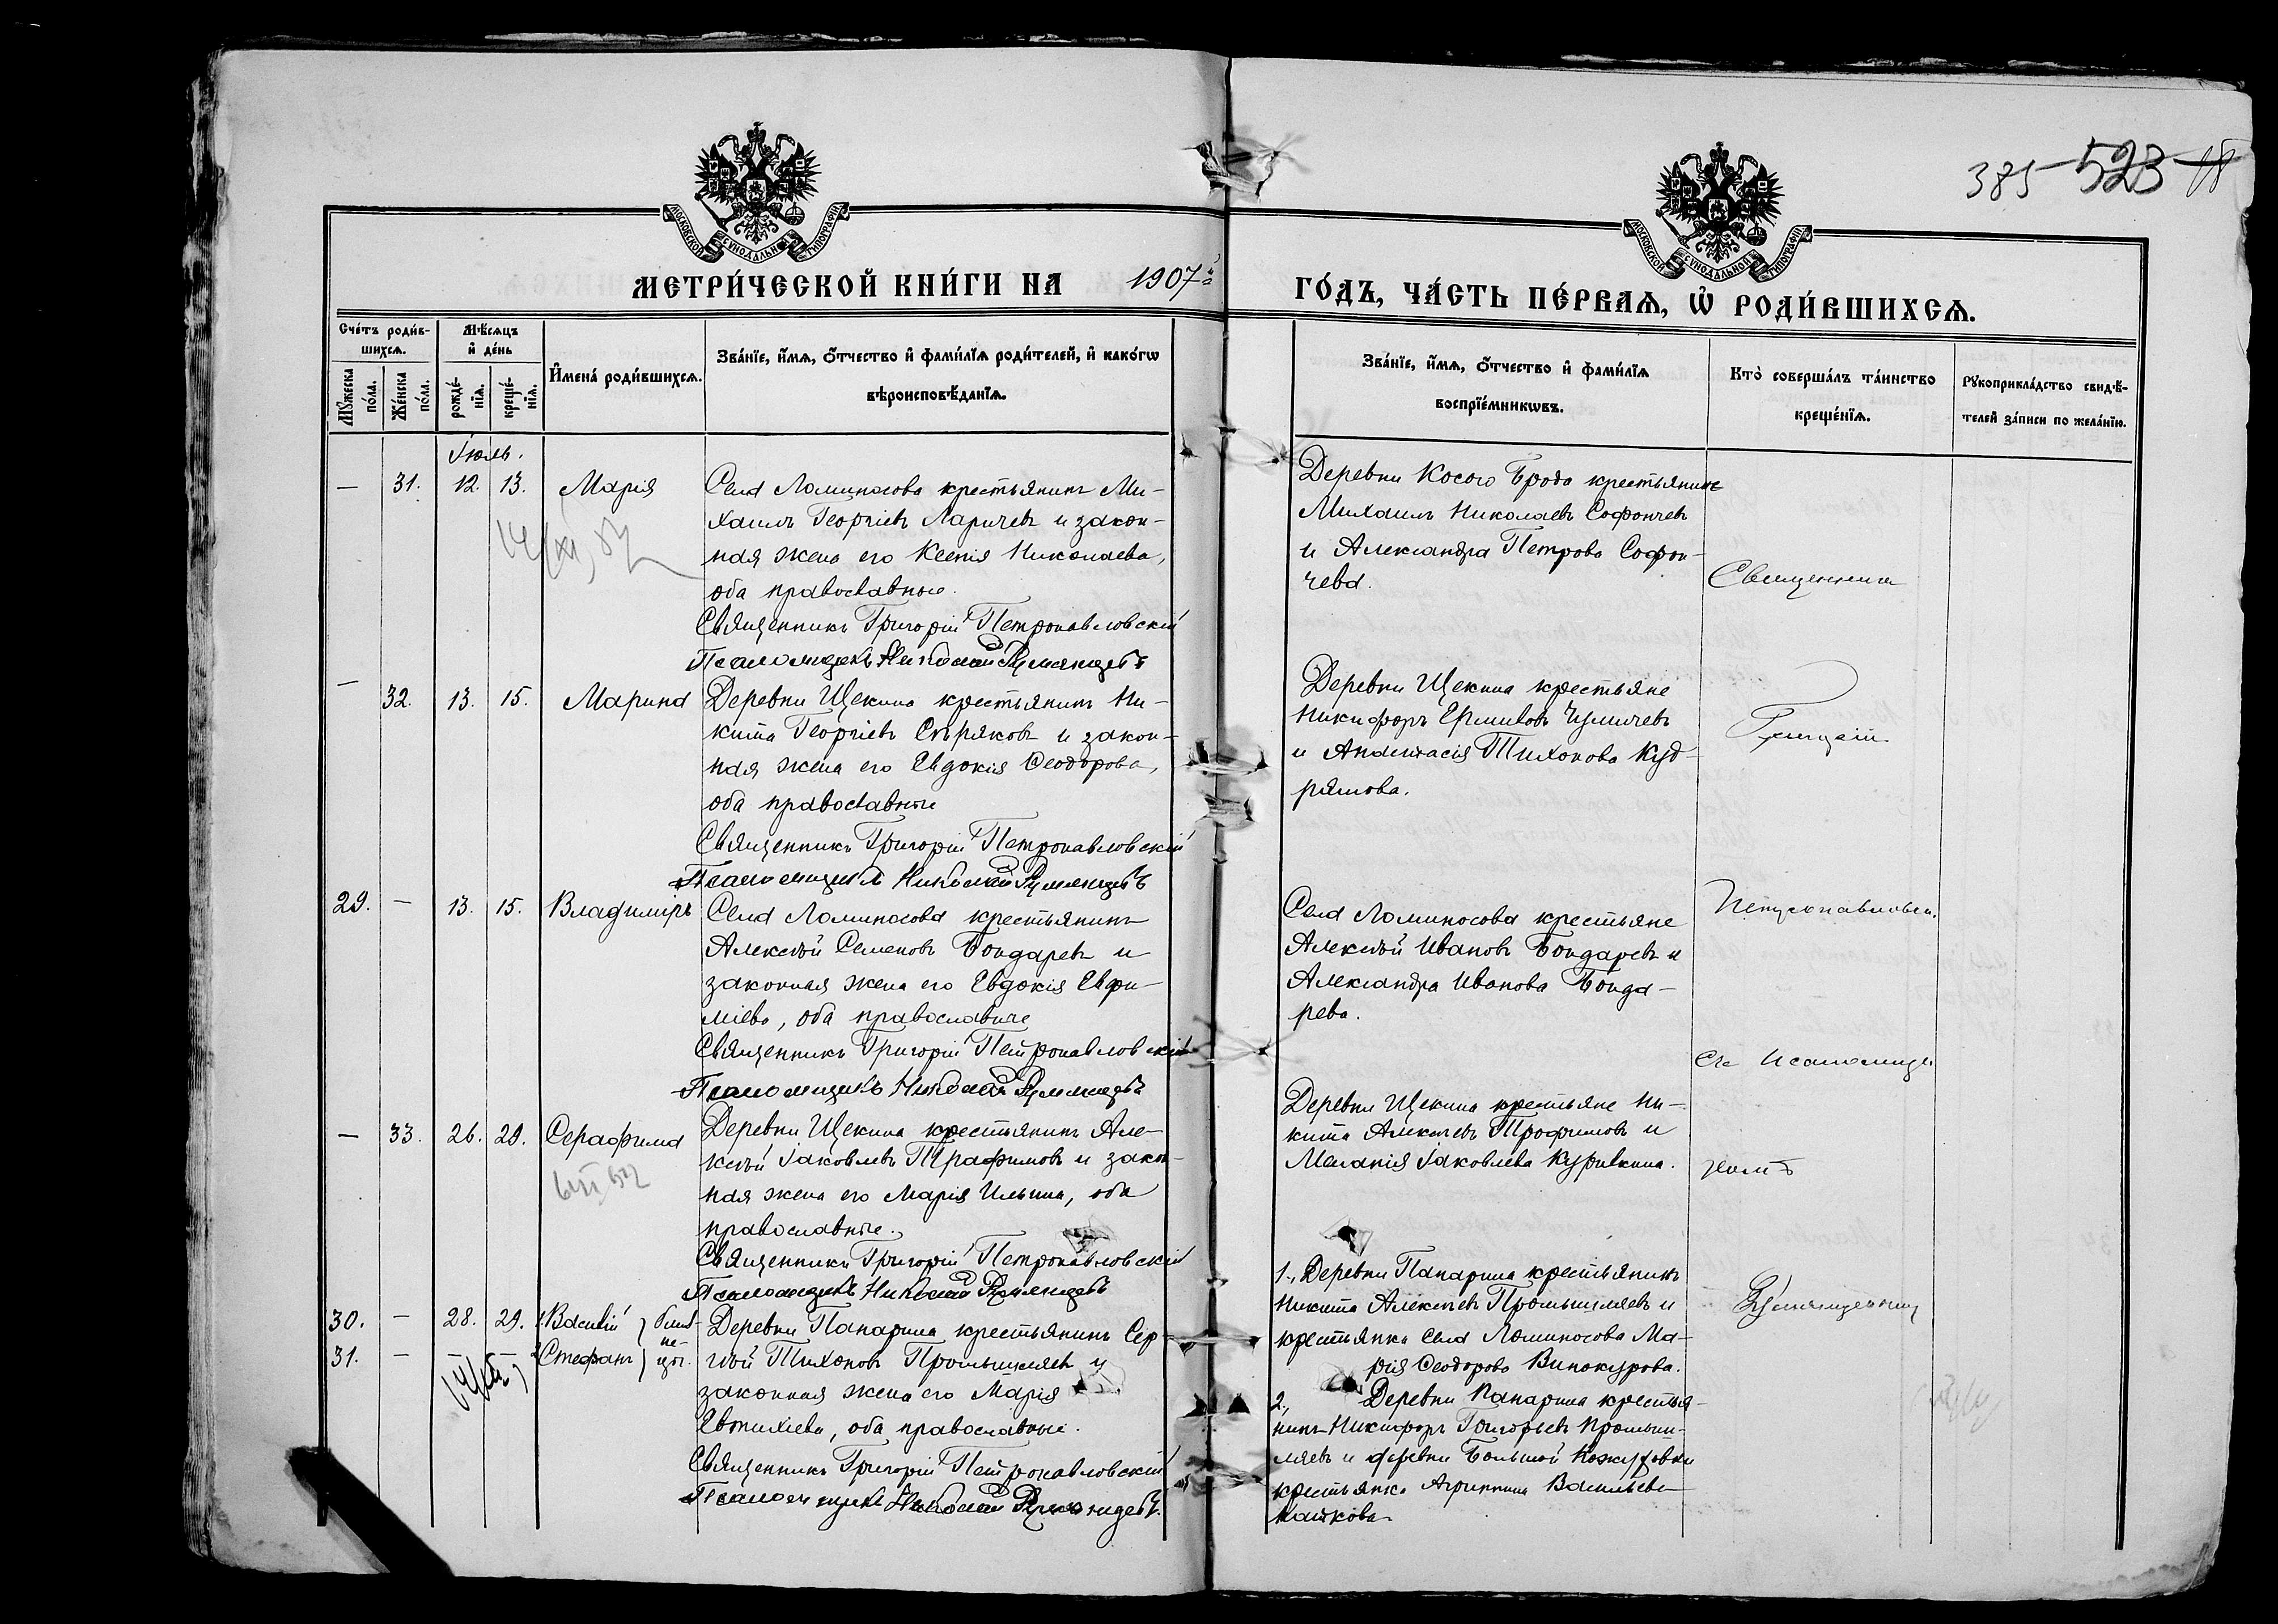 385 523 18
МОСКОВСКОЙ СѴНОДАЛЬНОЙ ТИПОГРАФІИ
МОСКОВСКОЙ СѴНОДАЛЬНОЙ ТИПОГРАФІИ
МЕТРИ́ЧЕСКОЙ КНИ́ГИ НА 1907й
ГО́ДЪ, ЧА́СТЬ ПЕ́РВАѦ, Ѡ҆ РОДИ́ВШИХСѦ.
Сче́тъ роди́в-
шихсѧ.
Мꙋ́жеска по́ла.
Же́нска по́ла.
Мѣ́сѧцъ
и҆ де́нь
рожде́-
нїѧ.
креще́-
нїѧ.
И҆мена̀ роди́вшихсѧ.
Зва́нїе, и҆́мѧ, ѻ҆́тчество и҆ фами́лїѧ роди́телей, и҆ како́гѡ
вѣроисповѣ́данїѧ.
Зва́нїе, и҆́мѧ, ѻ҆́тчество и҆ фами́лїѧ
воспрїе́мникѡвъ.
Кто̀ соверша́лъ та́инство
креще́нїѧ.
Рꙋкоприкла́дство свидѣ́-
телей за́писи по жела́нїю.
Іюль.
— 31. 12. 13. Марія
Села Ломиносова крестьянинъ Ми-
хаилъ Георгіевъ Ларичевъ и закон-
ная жена его Ксенія Николаева,
оба православные.
Священникъ Григорій Петропавловскій
Псаломщикъ Николай Румянцевъ
Деревни Косого Брода крестьянинъ
Михаилъ Николаевъ Софончевъ
и Александра Петрова Софон-
чева.
Священникъ
— 32. 13. 15. Марина
Деревни Щекина крестьянинъ Ни-
кита Георгіевъ Сѣряковъ и закон-
ная жена его Евдокія Ѳеодорова,
оба православные
Священникъ Григорій Петропавловскій
Псаломщикъ Николай Румянцевъ
Деревни Щекина крестьяне
Никифоръ Ермиловъ Чумичевъ
и Анастасія Тихонова Куд-
ряшова.
Григорій
29. — 13. 15. Владиміръ
Села Ломиносова крестьянинъ
Алексѣй Семеновъ Бондаревъ и
законная жена его Евдокія Евфи-
міева, оба православные
Священникъ Григорій Петропавловскій
Псаломщикъ Николай Румянцевъ
Села Ломиносова крестьяне
Алексѣй Ивановъ Бондаревъ и
Александра Иванова Бонда-
рева.
Петропавловск.
съ псаломщи
— 33. 26. 29. Серафима
Деревни Щекина крестьянинъ Але-
ксѣй Іаковлевъ Трафимовъ и закон-
ная жена его Марія Ильина, оба
православные.
Священникъ Григорій Петропавловскій
Псаломщикъ Николай Румянцевъ
Деревни Щекина крестьяне Ни-
кита Алексѣевъ Трофимовъ и
Меланія Іаковлева Куривкина.
комъ
30. — 28. 29. 1. Василій } близ-
не-
31. — — — 2. Стефанъ } цы.
Деревни Панарина крестьянинъ Сер-
гѣй Тихоновъ Промышляевъ и
законная жена его Марія
Евтихіева, оба православные.
Священникъ Григорій Петропавловскій
Псаломщикъ Николай Румянцевъ.
1., Деревни Панарина крестьянинъ
Никита Алексѣевъ Промышляевъ и
крестьянка села Ломиносова Ма-
рія Ѳеодорова Винокурова.
2., Деревни Панарина крестья-
нинъ Никифоръ Григорьевъ Промыш-
ляевъ и деревни Большой Кожуховки
крестьянка Агриппина Васильева